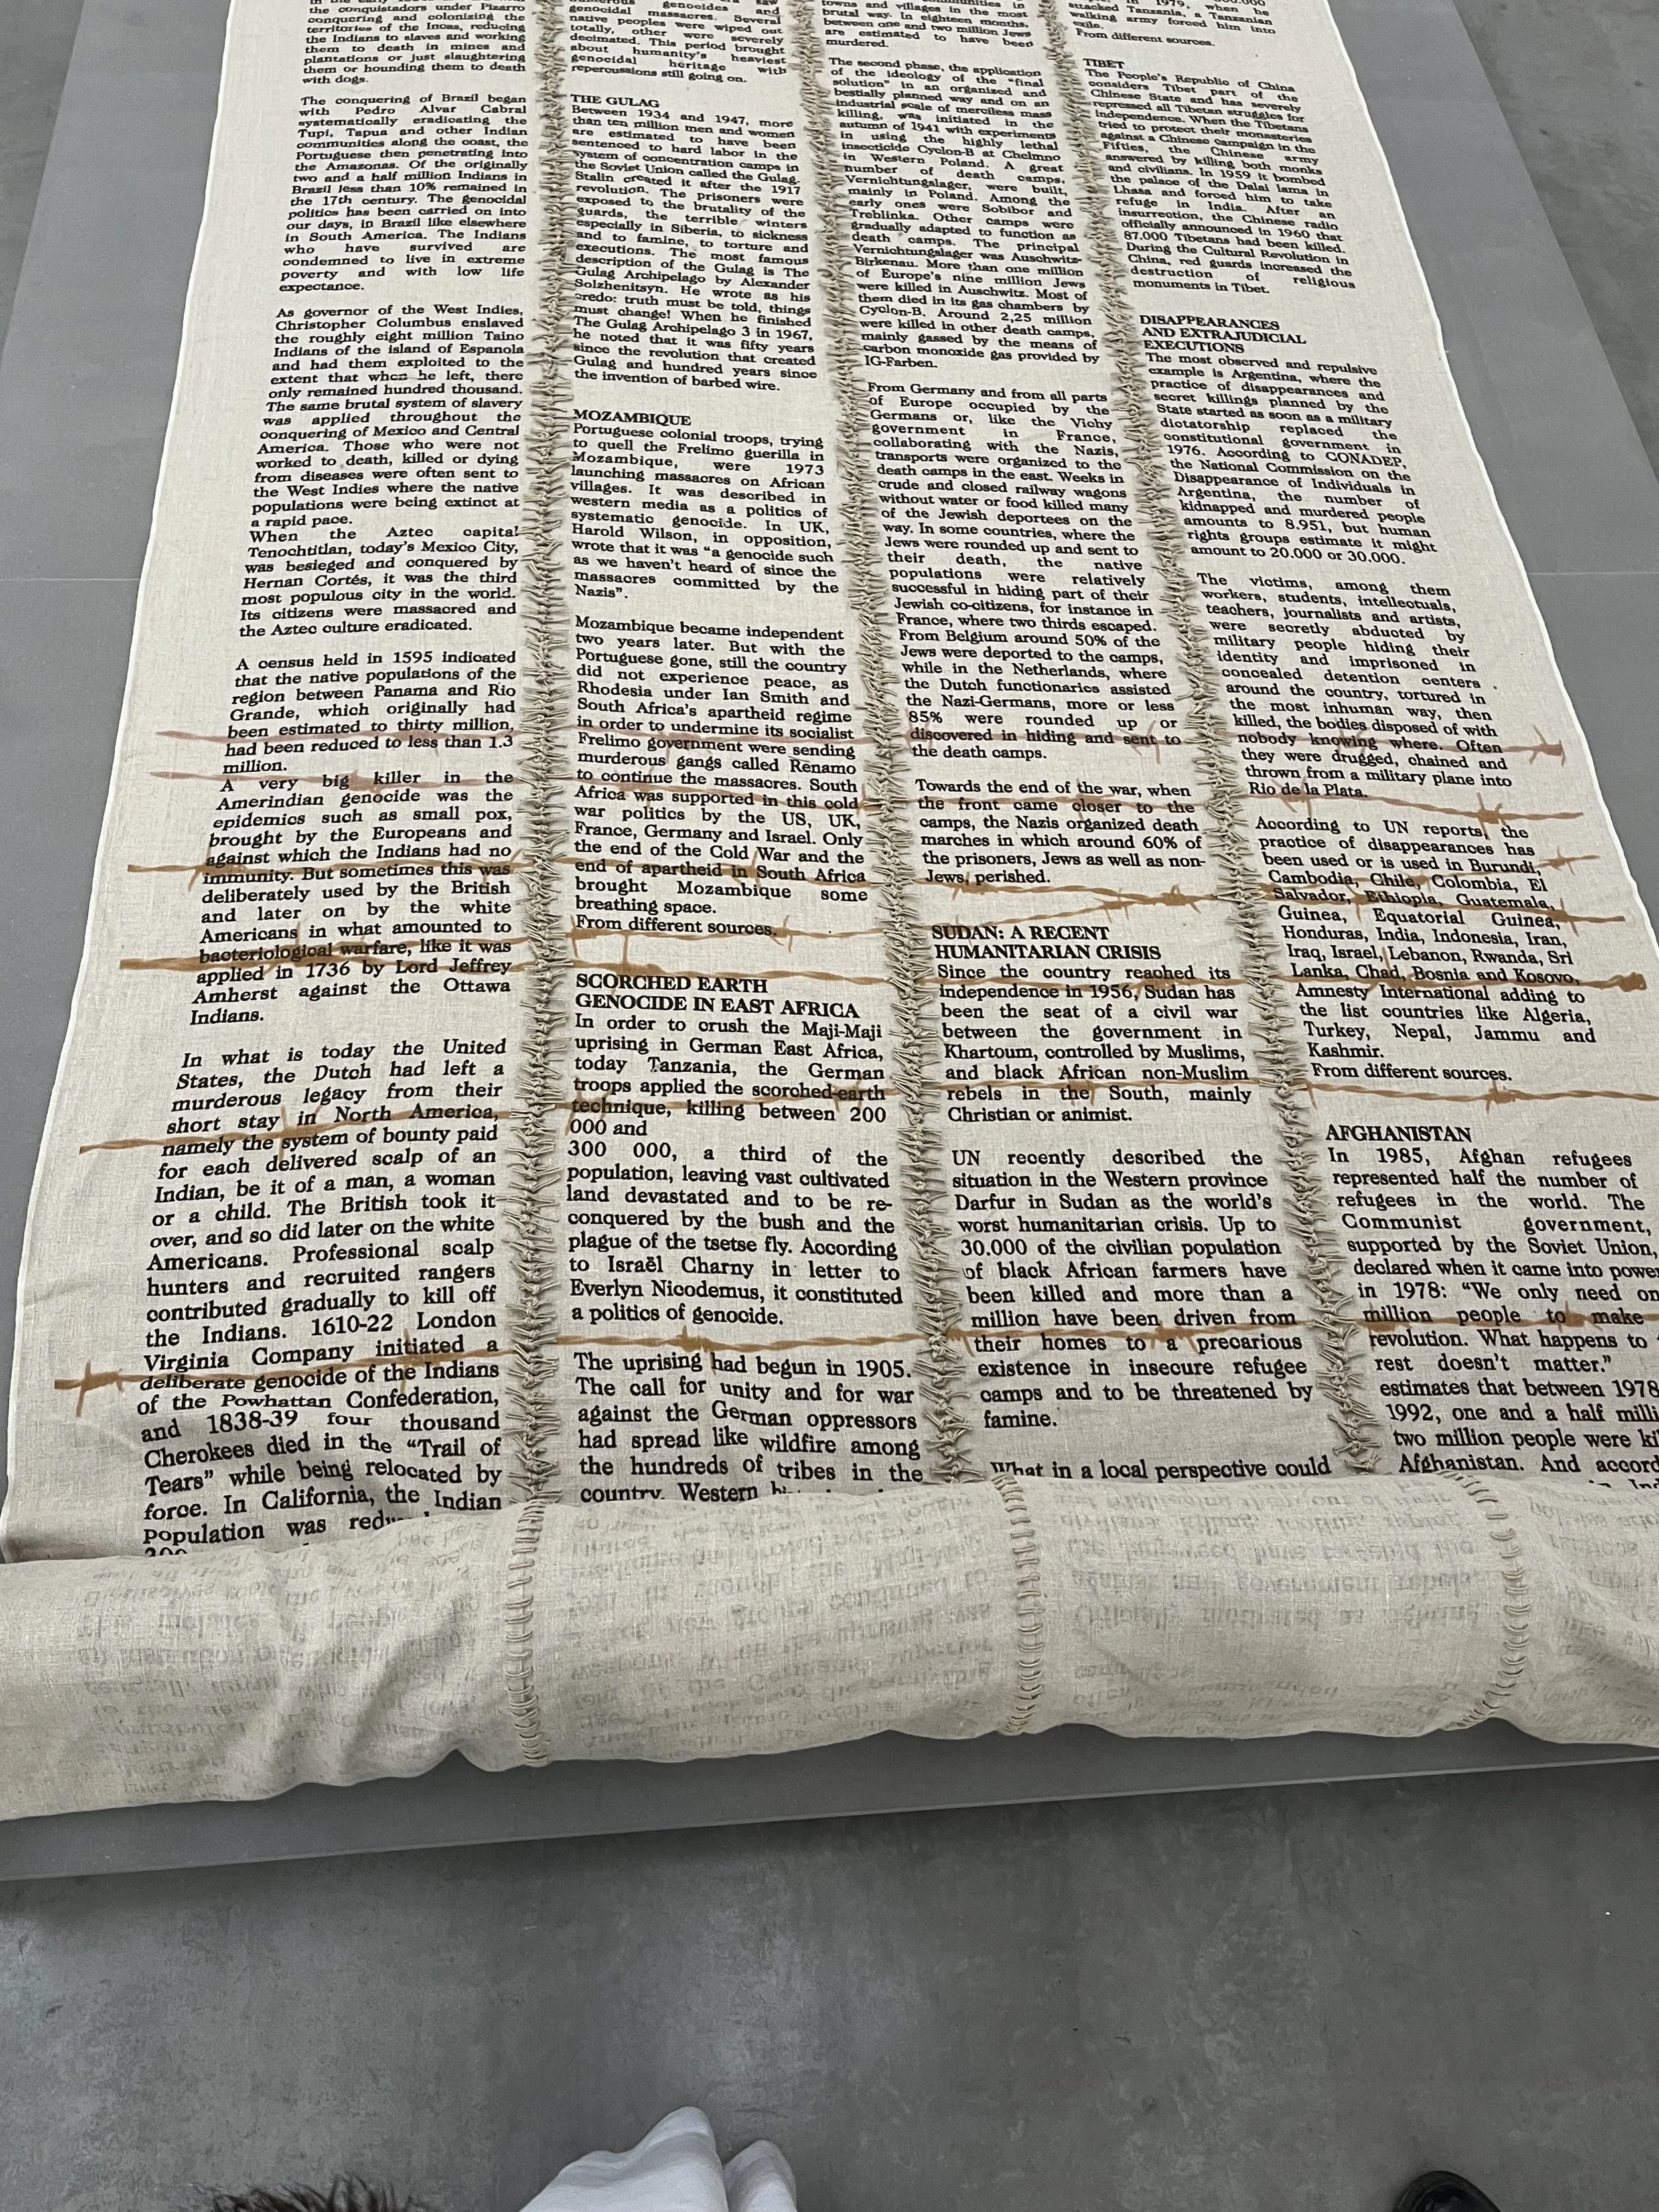 the conquistadors under Pizarro
conquering and colonizing the
territories of the Incas, reducing
the Indians to slaves and working
them to death in mines and
plantations or just slaughtering
them or hounding them to death
with dogs.
The conquering of Brazil began
with Pedro Alvar Cabral
systematically eradicating the
Tupi, Tapua and other Indian
communities along the coast, the
Portuguese then penetrating into
the Amazonas. Of the originally
two and a half million Indians in
Brazil less than 10% remained in
the 17th century. The genocidal
politics has been carried on into
our days, in Brazil like elsewhere
in South America. The Indians
who have survived are
condemned to live in extreme
poverty and with low life
expectance.
As governor of the West Indies,
Christopher Columbus enslaved
the roughly eight million Taino
Indians of the island of Espanola
and had them exploited to the
extent that when he left, there
only remained hundred thousand.
The same brutal system of slavery
was applied throughout the
conquering of Mexico and Central
America. Those who were not
worked to death, killed or dying
from diseases were often sent to
the West Indies where the native
populations were being extinct at
a rapid pace.
When the Aztec capital
Tenochtitlan, today's Mexico City,
was besieged and conquered by
Hernan Cortés, it was the third
most populous city in the world.
Its citizens were massacred and
the Aztec culture eradicated.
A census held in 1595 indicated
that the native populations of the
region between Panama and Rio
Grande, which originally had
been estimated to thirty million,
had been reduced to less than 1.3
million.
A very big killer in the
Amerindian genocide was the
epidemics such as small pox,
brought by the Europeans and
against which the Indians had no
immunity. But sometimes this was
deliberately used by the British
and later on by the white
Americans in what amounted to
bacteriological warfare, like it was
applied in 1736 by Lord Jeffrey
Amherst against the Ottawa
Indians.
In what is today the United
States, the Dutch had left a
murderous legacy from their
short stay in North America,
namely the system of bounty paid
for each delivered scalp of an
Indian, be it of a man, a woman
or a child. The British took it
over, and so did later on the white
Americans. Professional scalp
hunters and recruited rangers
contributed gradually to kill off
the Indians. 1610-22 London
Virginia Company initiated a
deliberate genocide of the Indians
of the Powhattan Confederation,
and 1838-39 four thousand
Cherokees died in the "Trail of
Tears" while being relocated by
force. In California, the Indian
population was
genocides and
genocidal massacres. Several
native peoples were wiped out
totally, other were severely
decimated. This period brought
about humanity's heaviest
genocidal heritage with
repercussions still going on.
THE GULAG
Between 1934 and 1947, more
than ten million men and women
are estimated to have been
sentenced to hard labor in the
system of concentration camps in
the Soviet Union called the Gulag.
Stalin created it after the 1917
revolution. The prisoners were
exposed to the brutality of the
guards, the terrible winters
especially in Siberia, to sickness
and to famine, to torture and
executions. The most famous
description of the Gulag is The
Gulag Archipelago by Alexander
Solzhenitsyn. He wrote as his
credo: truth must be told, things
must change! When he finished
The Gulag Archipelago 3 in 1967,
he noted that it was fifty years
since the revolution that created
Gulag and hundred years since
the invention of barbed wire.
MOZAMBIQUE
Portuguese colonial troops, trying
to quell the Frelimo guerilla in
Mozambique, were 1973
launching massacres on African
villages. It was described in
western media as a politics of
systematic genocide. In UK,
Harold Wilson, in opposition,
wrote that it was "a genocide such
as we haven't heard of since the
massacres committed by the
Nazis".
Mozambique became independent
two years later. But with the
Portuguese gone, still the country
did not experience peace, as
Rhodesia under Ian Smith and
South Africa's apartheid regime
in order to undermine its socialist
Frelimo government were sending
murderous gangs called Renamo
to continue the massacres. South
Africa was supported in this cold
war politics by the US, UK,
France, Germany and Israel. Only
the end of the Cold War and the
end of apartheid in South Africa
brought Mozambique some
breathing space.
From different sources.
SCORCHED EARTH
GENOCIDE IN EAST AFRICA
In order to crush the Maji-Maji
uprising in German East Africa,
today Tanzania, the German
troops applied the scorched-earth
technique, killing between 200
000 and
300 000, a third of the
population, leaving vast cultivated
land devastated and to be re-
conquered by the bush and the
plague of the tsetse fly. According
to Israël Charny in letter to
Everlyn Nicodemus, it constituted
a politics of genocide.
The uprising had begun in 1905.
The call for unity and for war
against the German oppressors
had spread like wildfire among
the hundreds of tribes in the
country. Western
towns and villages in the most
brutal way. In eighteen months,
between one and two million Jews
are estimated to have been
murdered.
The second phase, the application
of the ideology of the "final
solution" in an organized and
bestially planned way and on an
industrial scale of merciless mass
killing, was initiated in the
autumn of 1941 with experiments
in using the highly lethal
insecticide Cyclon-B at Chelmno
in Western Poland. A great
number of death camps,
Vernichtungslager, were built,
mainly in Poland. Among the
early ones were Sobibor and
Treblinka. Other camps were
gradually adapted to function as
death camps. The principal
Vernichtungslager was Auschwitz-
Birkenau. More than one million
of Europe's nine million Jews
were killed in Auschwitz. Most of
them died in its gas chambers by
Cyclon-B. Around 2,25 million
were killed in other death camps,
mainly gassed by the means of
carbon monoxide gas provided by
IG-Farben.
From Germany and from all parts
of Europe occupied by the
Germans or, like the Vichy
government in France,
collaborating with the Nazis,
transports were organized to the
death camps in the east. Weeks in
crude and closed railway wagons
without water or food killed many
of the Jewish deportees on the
way. In some countries, where the
Jews were rounded up and sent to
their death, the native
populations were relatively
successful in hiding part of their
Jewish co-citizens, for instance in
France, where two thirds escaped.
From Belgium around 50% of the
Jews were deported to the camps,
while in the Netherlands, where
the Dutch functionaries assisted
the Nazi-Germans, more or less
85% were rounded up or
discovered in hiding and sent to
the death camps.
Towards the end of the war, when
the front came closer to the
camps, the Nazis organized death
marches in which around 60% of
the prisoners, Jews as well as non-
Jews, perished.
SUDAN: A RECENT
HUMANITARIAN CRISIS
Since the country reached its
independence in 1956, Sudan has
been the seat of a civil war
between the government in
Khartoum, controlled by Muslims,
and black African non-Muslim
rebels in the South, mainly
Christian or animist.
UN recently described the
situation in the Western province
Darfur in Sudan as the world's
worst humanitarian crisis. Up to
30.000 of the civilian population
of black African farmers have
been killed and more than a
million have been driven from
their homes to a precarious
existence in insecure refugee
camps and to be threatened by
famine.
What in a local perspective could
attacked Tanzania, a Tanzanian
walking army forced him into
exile.
From different sources.
TIBET
The People's Republic of China
considers Tibet part of the
Chinese State and has severely
repressed all Tibetan struggles for
independence. When the Tibetans
tried to protect their monasteries
against a Chinese campaign in the
Fifties, the Chinese army
answered by killing both monks
and civilians. In 1959 it bombed
the palace of the Dalai lama in
Lhasa and forced him to take
refuge in India. After an
insurrection, the Chinese radio
officially announced in 1960 that
87.000 Tibetans had been killed.
During the Cultural Revolution in
China, red guards increased the
destruction of religious
monuments in Tibet.
DISAPPEARANCES
AND EXTRAJUDICIAL
EXECUTIONS
The most observed and repulsive
example is Argentina, where the
practice of disappearances and
secret killings planned by the
State started as soon as a military
dictatorship replaced the
constitutional government in
1976. According to CONADEP,
the National Commission on the
Disappearance of Individuals in
Argentina, the number of
kidnapped and murdered people
amounts to 8.951, but human
rights groups estimate it might
amount to 20.000 or 30.000.
The victims, among them
workers, students, intellectuals,
teachers, journalists and artists,
were secretly abducted by
military people hiding their
identity and imprisoned in
concealed detention centers
around the country, tortured in
the most inhuman way, then
killed, the bodies disposed of with
nobody knowing where. Often
they were drugged, chained and
thrown from a military plane into
Rio de la Plata.
According to UN reports, the
practice of disappearances has
been used or is used in Burundi,
Cambodia, Chile, Colombia, El
Salvador, Ethiopia, Guatemala,
Guinea, Equatorial Guinea,
Honduras, India, Indonesia, Iran,
Iraq, Israel, Lebanon, Rwanda, Sri
Lanka, Chad, Bosnia and Kosovo,
Amnesty International adding to
the list countries like Algeria,
Turkey, Nepal, Jammu and
Kashmir.
From different sources.
AFGHANISTAN
In 1985, Afghan refugees
represented half the number of
refugees in the world. The
Communist government,
supported by the Soviet Union,
declared when it came into power
in 1978: "We only need
million people to make
revolution. What happens to
rest doesn't matter."
estimates that between 1978
1992, one and a half
two million people were
Afghanistan. And